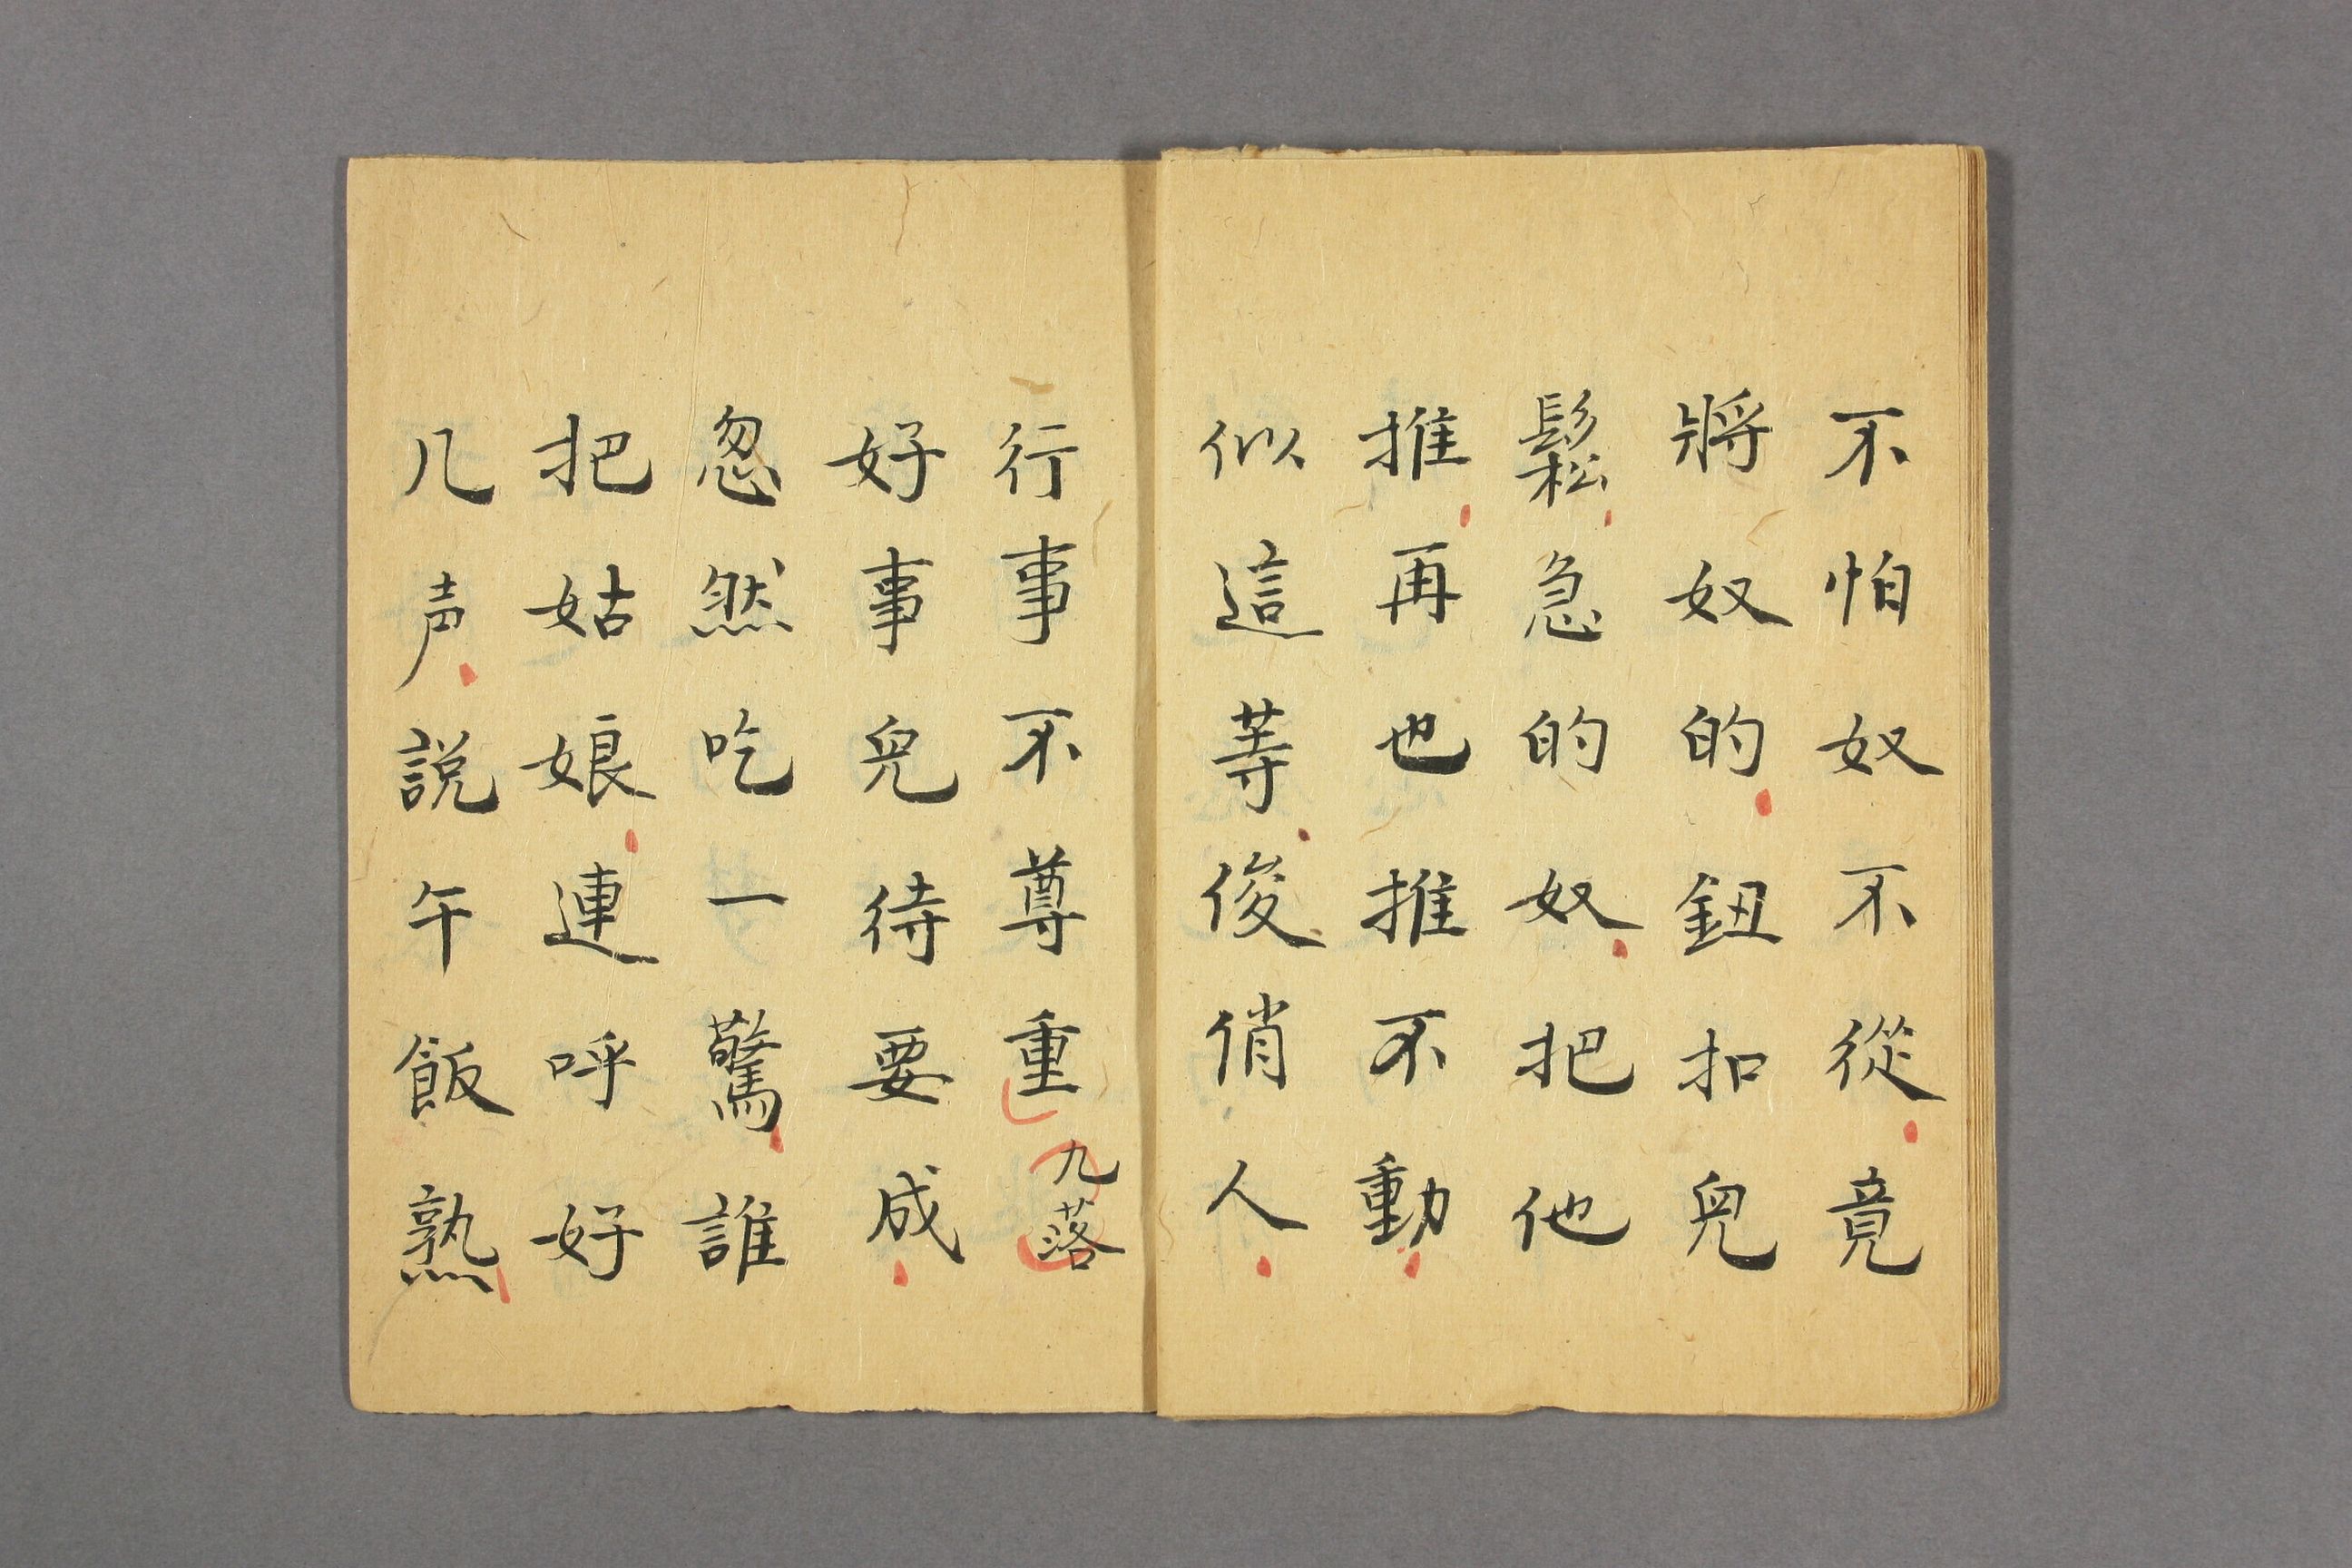 不怕奴不從竟
將奴的鈕扣兒
鬆急的奴把他
推再也推不動
似這等俊俏人
行事不尊重九落
好事兒待要成
忽然吃一驚誰
把姑娘連呼好
几声説午飯熟